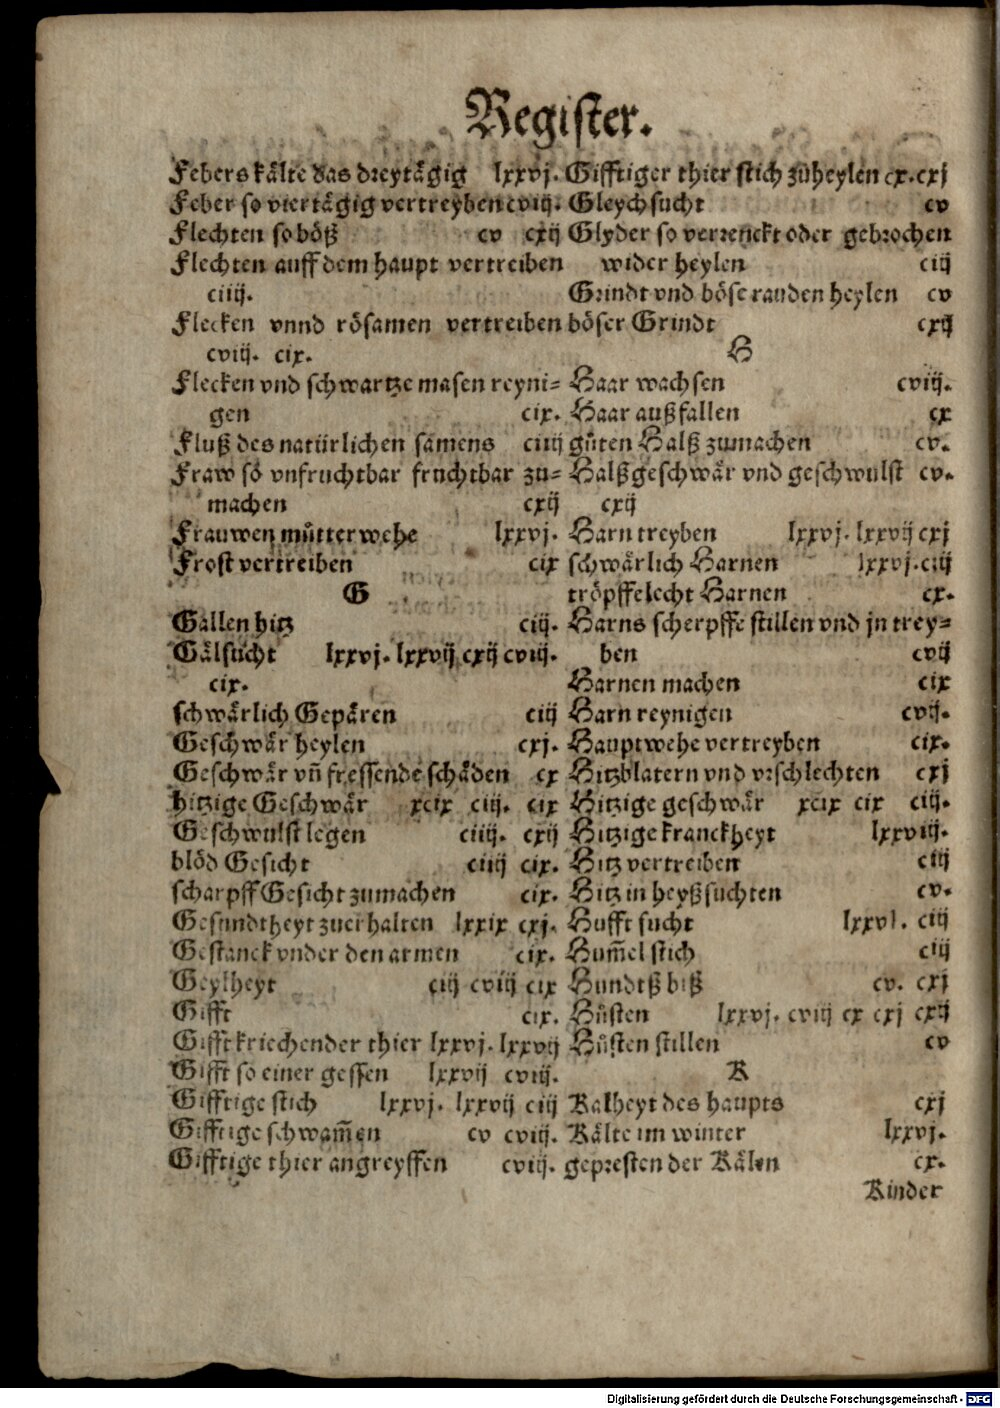 Register.
Febers kälte das dreytägig lxxvj.
Feber so viertägig vertreyben cviij.
Flechten so böß cv cxij
Flechten auff dem haupt vertreiben
ciiij.
Flecken vnnd rösamen vertreiben
cviij. cix.
Flecken vnd schwartze masen reyni=
gen cix.
Fluß des natürlichen samens ciiij
Fraw so vnfruchtbar fruchtbar zu=
machen cxij
Frauwen můtter wehe lxxvj.
Frost vertreiben cix
G
Gallen hitz ciij.
Gälsucht lxxvj. lxxvij cxij cviij.
cix.
schwärlich Gepären ciij
Geschwär heylen cxj.
Geschwär vñ fressende schäden cx
hitzige Geschwär xcix ciij. cix
Geschwulst legen ciiij. cxij
blöd Gesicht ciiij cix.
scharpff Gesicht zumachen cix.
Gesundtheyt zuerhalten lxxix cxj.
Gestanck vnder den armen cix.
Geylheyt ciij cviij cix
Gifft cix.
Gifft kriechender thier lxxvj. lxxvij
Gifft so einer gessen lxxvij cviij.
Gifftige stich lxxvj. lxxvij ciij
Gifftige schwam̃en cv cviij.
Gifftige thier angreyffen cviij.
Gifftiger thier stich zůheylen cx. cxj
Gleychsucht cv
Glyder so verrenckt oder gebrochen
wider heylen ciij
Grindt vnd böse rauden heylen cv
böser Grindt cxij
H
Haar wachsen cviij.
Haar außfallen cx
gůten Halß zumachen cv.
Halßgeschwär vnd geschwulst cv.
cxij
Harn treyben lxxvj. lxxvij cxj
schwärlich Harnen lxxvj. ciij
tröpffelecht Harnen cx.
Harns scherpffe stillen vnd jn trey=
ben cvij
Harnen machen cix
Harn reynigen cvij.
Hauptwehe vertreyben cix.
Hitzblatern vnd vrschlechten cxj
Hitzige geschwär xcix cix ciij.
Hitzige kranckheyt lxxviij.
Hitz vertreiben ciij
Hitz in heyßsuchten cv.
Hufft sucht lxxvj. ciij
Hum̃el stich ciij
Hundtß biß cv. cxj
Hůsten lxxvj. cviij cx cxj cxij
Hůsten stillen cv
K
Kalheyt des haupts cxj
Kälte im winter lxxvj.
gepresten der Kälen cx.
Kinder
Digitalisierung gefördert durch die Deutsche Forschungsgemeinschaft - DFG